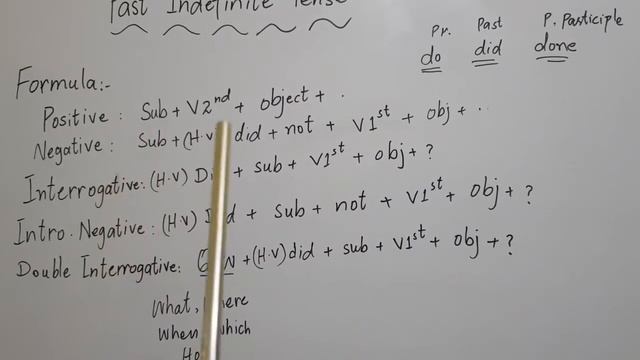 Past Indefinite Tense
Pr. Past P. Pasticiple
do did done
Formula:-
Positive : Sub + V2nd + Object + .
Negative : Sub + (H.V) did + not + V1st + Obj + ..
Interrogative: (H.V) Did + sub + V1st + obj + ?
Intro. Negative : (H.V) Did + sub + not + V1st + Obj + ?
Double Interrogative: + (H.V) did + sub + V1st + Obj + ?
What, where
When, which